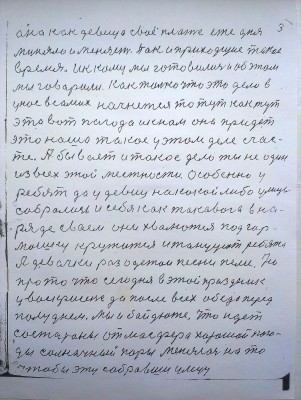 3
она как девица своё платье еже дня
миняло и меняет. Так и приходящие такое
время. И к кому мы готовимся и об этом
мы говорим. Как только что это дело в
умое в самих начнется то тут как тут
эта вот погода и к нам она придет
это наше такое у этом деле счас-
те. А бывает и такое дело ты не один
из всех этой местности Особенно у
ребят да у девиц на какой либо улице
собрались и себя как такового в на-
ряде своем они хвалются под гар-
мошку крутится и танцуют ребята
А девочки разодетои песни пели. Но
про то что сегодня в этой праздник
у воскрисение да после всех обеда перед
полуднем. Мы и беседуем, что идет
со стараны атмасфера хорошей пого-
ды солнечный поры менялся на то
чтобы эту собравши улицу